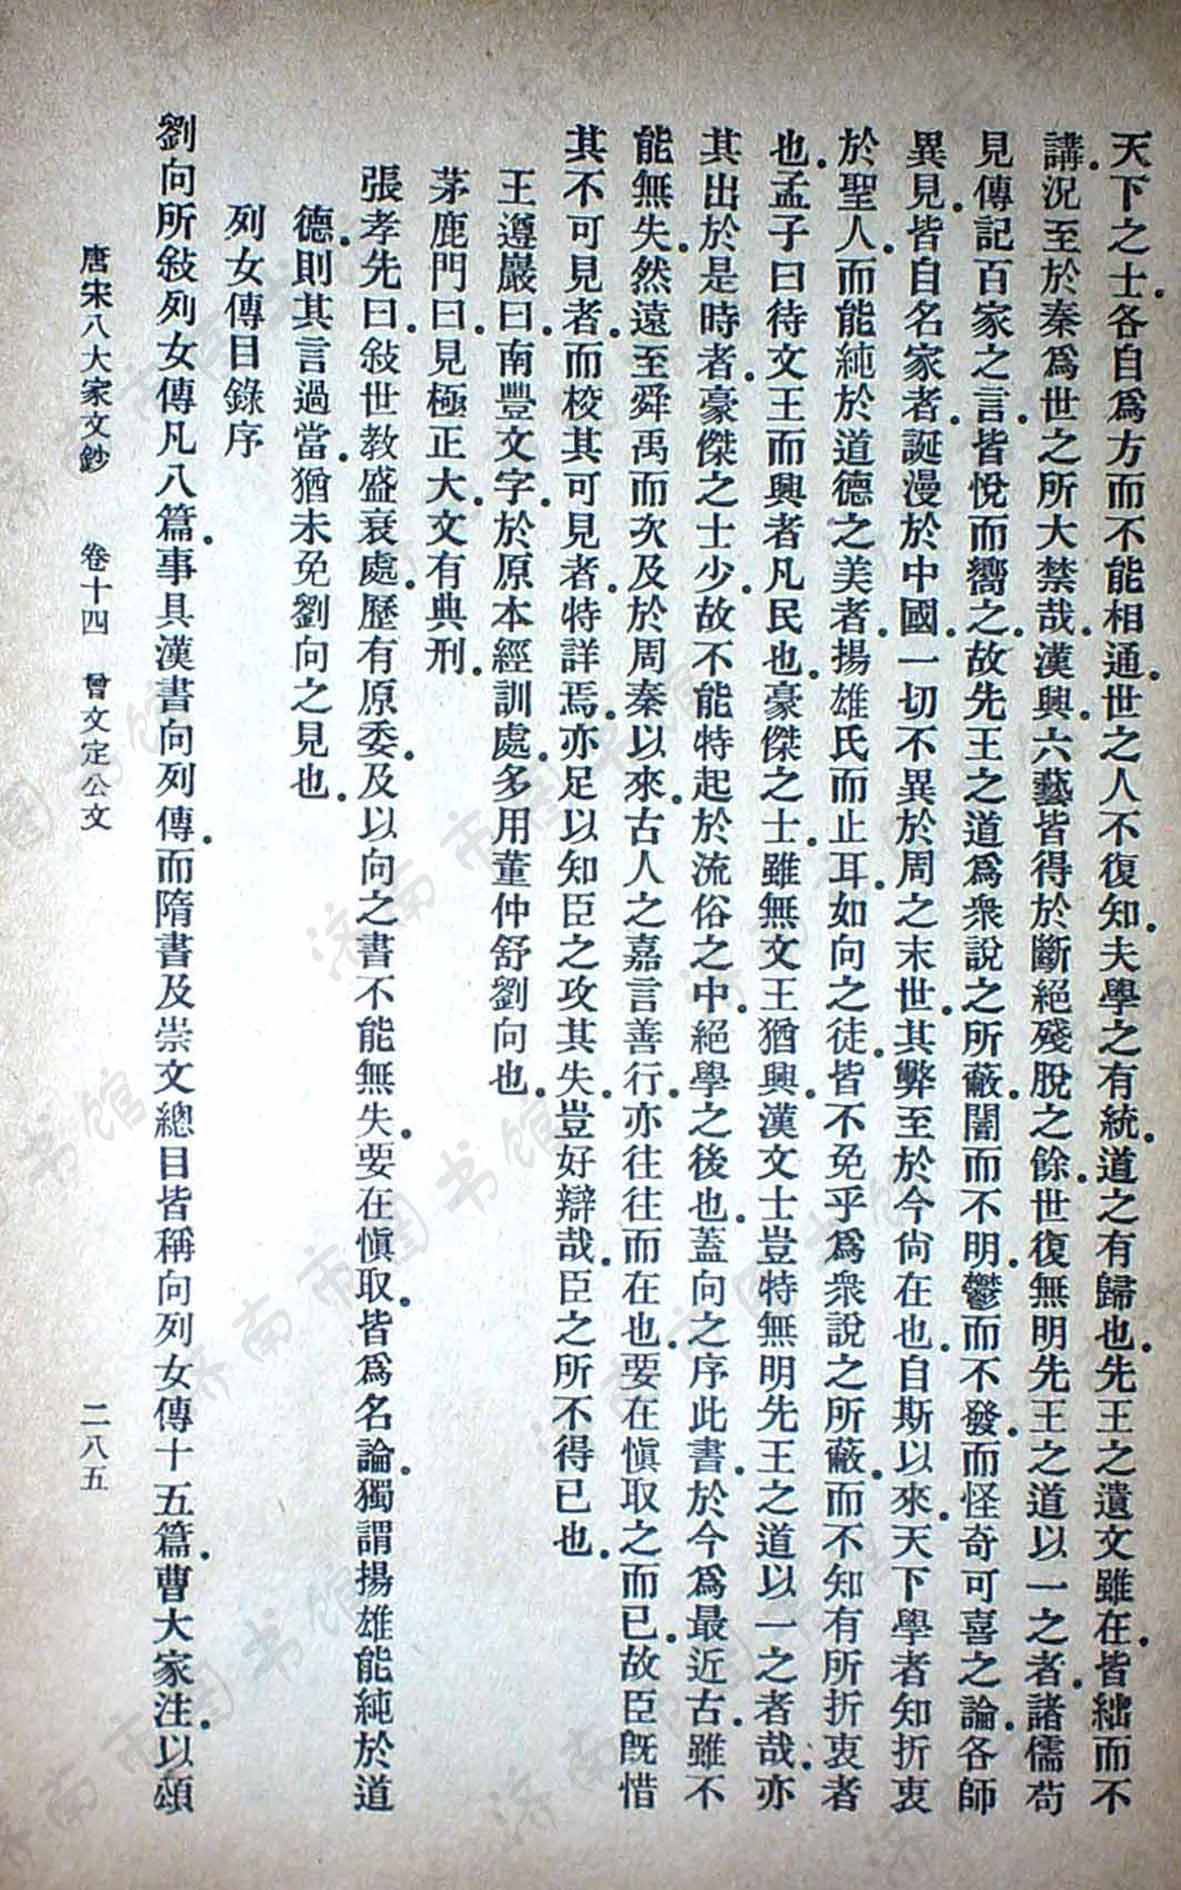 天下之士.各自爲方而不能相通.世之人不復知.夫學之有統.道之有歸也.先王之遺文雖在.皆絀而不
講.況至於秦爲世之所大禁哉.漢興.六藝皆得於斷絕殘脫之餘.世復無明先王之道以一之者.諸儒苟
見傳記百家之言.皆悅而嚮之.故先王之道爲衆說之所蔽.闇而不明.鬱而不發.而怪奇可喜之論.各師
異見.皆自名家者.誕漫於中國.一切不異於周之末世.其弊至於今尙在也.自斯以來.天下學者知折衷
於聖人.而能純於道德之美者.揚雄氏而止耳.如向之徒.皆不免乎爲衆說之所蔽.而不知有所折衷者
也.孟子曰待文王而興者.凡民也.豪傑之士.雖無文王猶興.漢文士豈特無明先王之道以一之者哉.亦
其出於是時者.豪傑之士少.故不能特起於流俗之中.絕學之後也.蓋向之序此書.於今爲最近古.雖不
能無失.然遠至舜禹而次及於周秦以來.古人之嘉言善行.亦往往而在也.要在愼取之而已.故臣旣惜
其不可見者.而校其可見者.特詳焉.亦足以知臣之攻其失.豈好辯哉.臣之所不得已也.
王遵巖曰.南豐文字.於原本經訓處.多用董仲舒劉向也.
茅鹿門曰.見極正大.文有典刑.
張孝先曰.敍世教盛衰處.歷有原委.及以向之書不能無失.要在愼取.皆爲名論.獨謂揚雄能純於道
德.則其言過當.猶未免劉向之見也.
列女傳目錄序
劉向所敍列女傳凡八篇.事具漢書向列傳.而隋書及崇文總目皆稱向列女傳十五篇.曹大家注.以頌
唐宋八大家文鈔 卷十四 曾文定公文 二八五
济南市图书馆